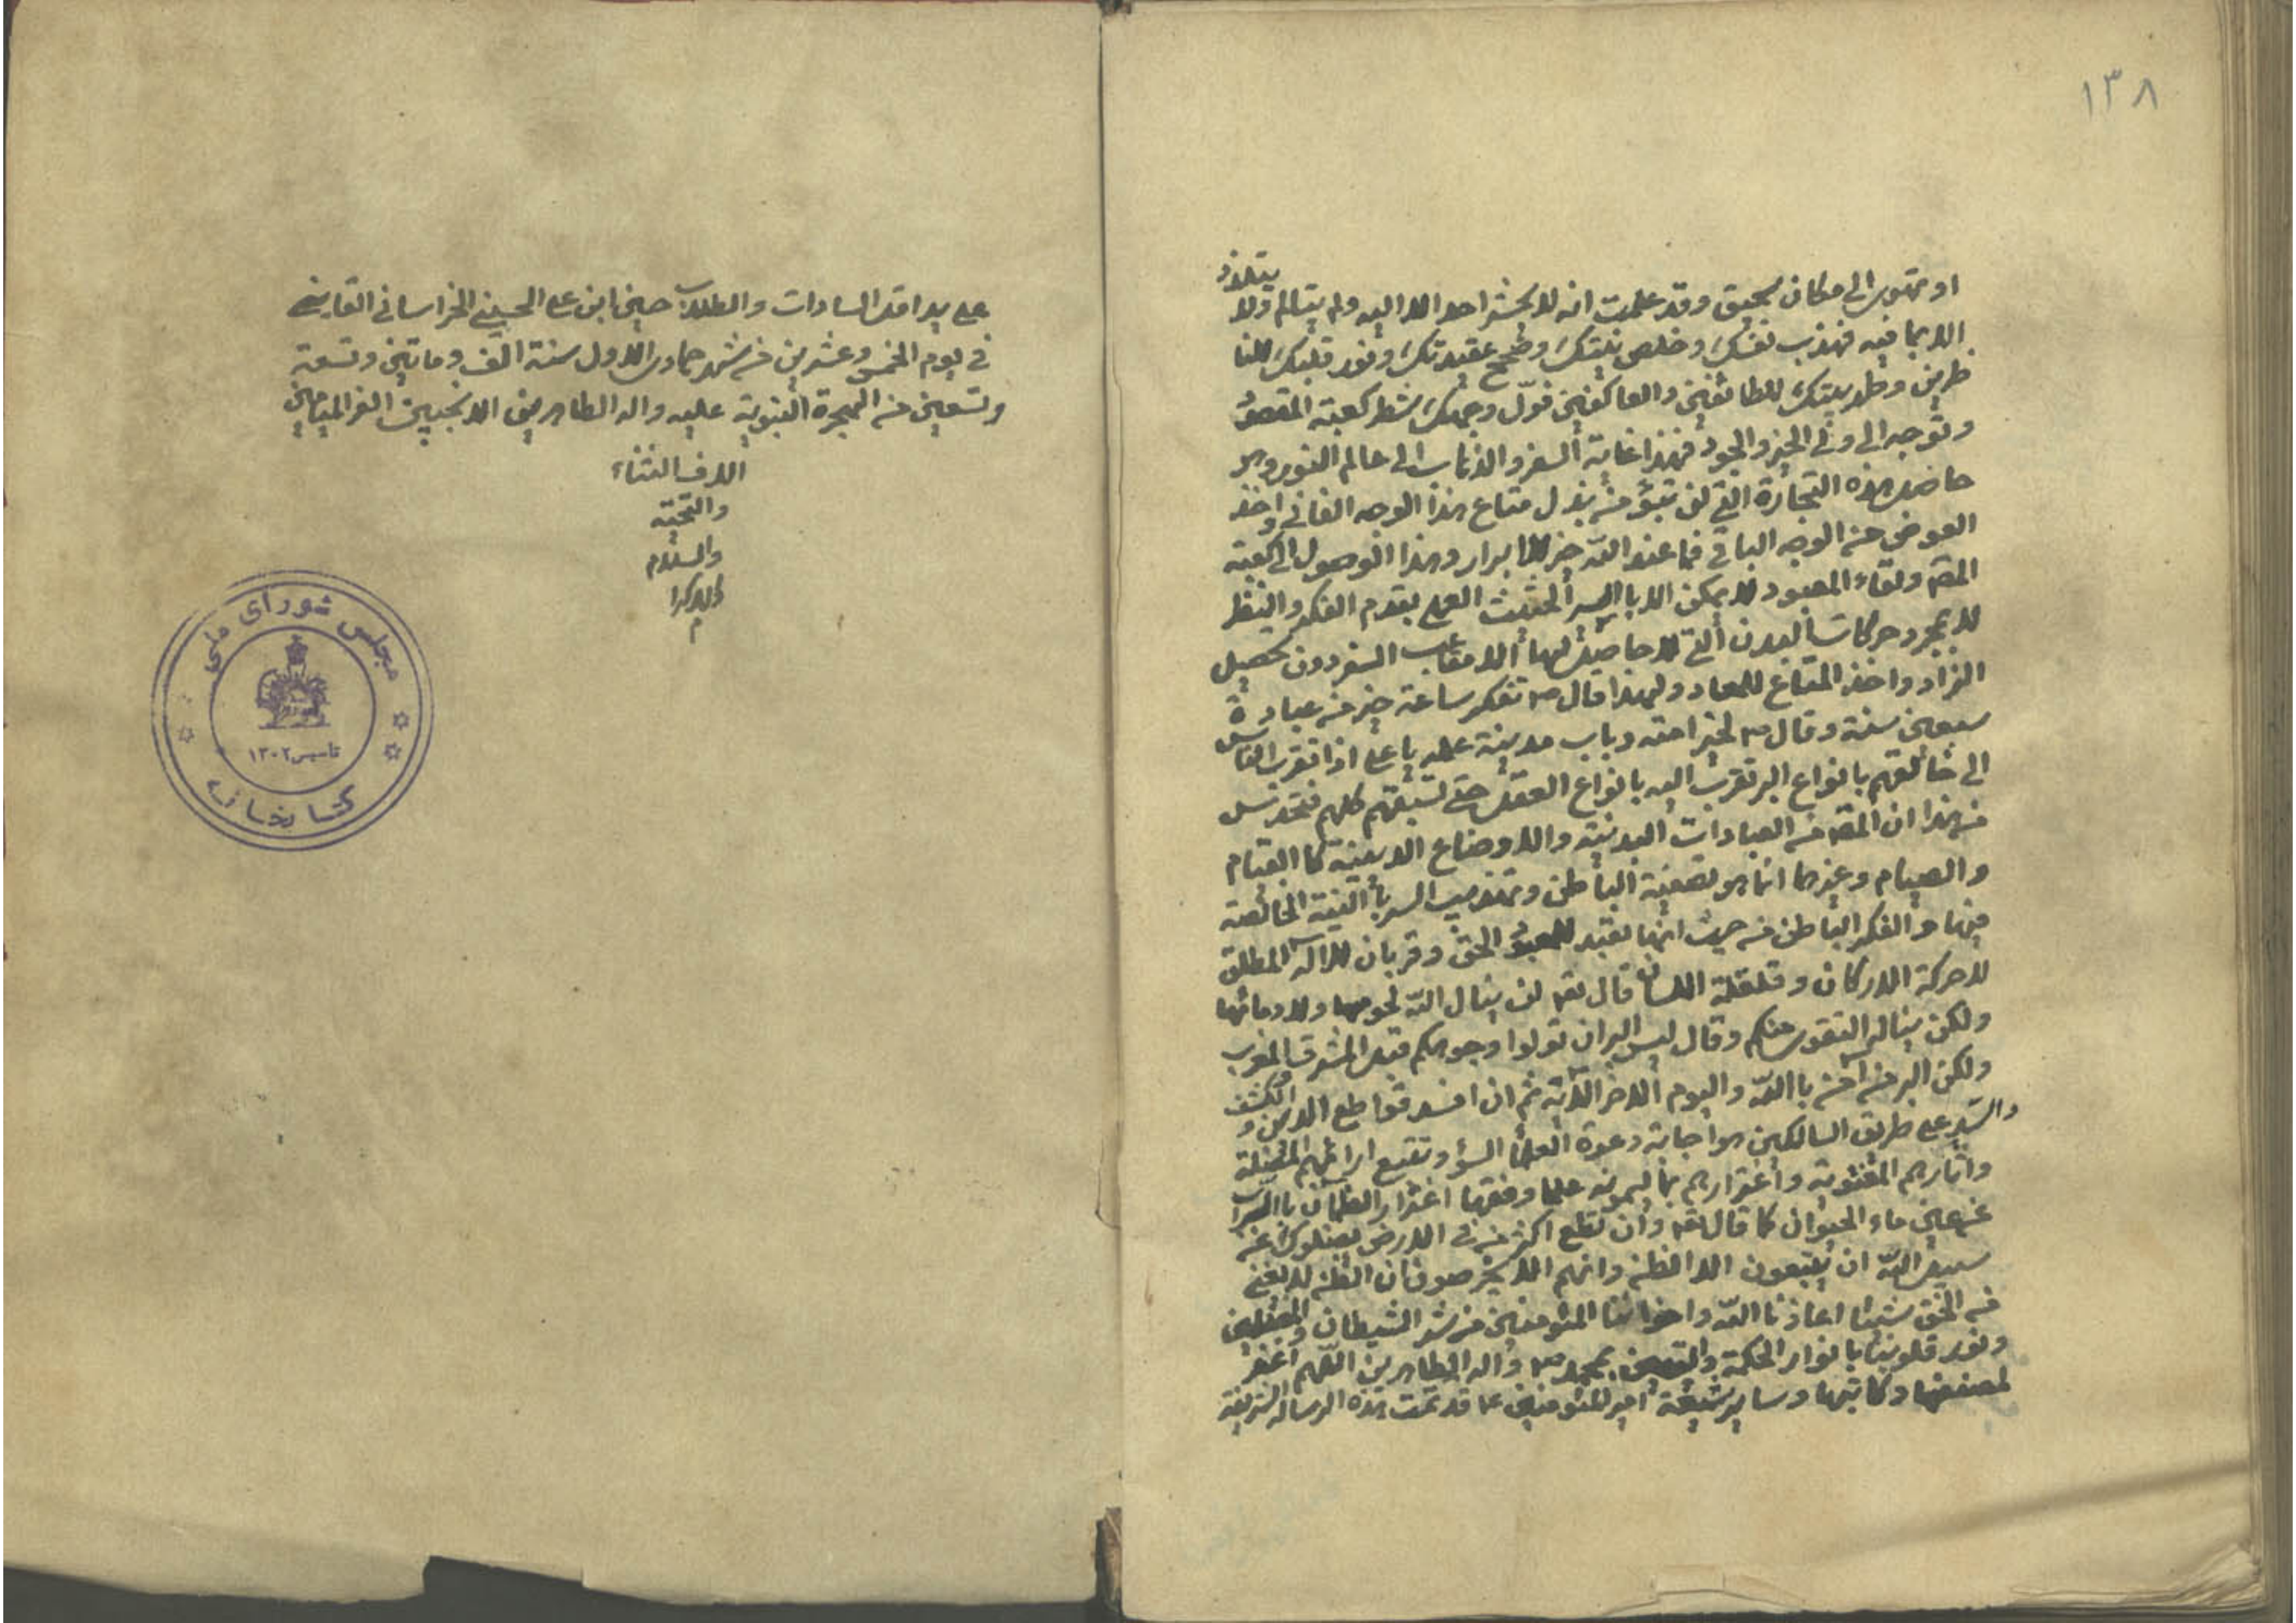 ١٣٨
او تهوى الى مكان سحيق وقد علمت انه لا يحشر احد الا اليه ولم يتالم ولا يتلذذ
الا بما فيه فهذب نفسك وخلص نيتك وصحح عقيدتك ونور قلبك للنا
ظرين وطهر بيتك للطائفين والعاكفين فولّ وجهك شطر كعبة المقصود
وتوجه الى ولى الخير والجود فهذا غاية السفر والذهاب الى عالم النور وهو
حاصل هذه التجارة التي لن تبور من بذل متاع هذا الوجه الفاني واخذ
العوض من الوجه الباقي فما عند الله خير للابرار وهذا الوصول الى كعبة
المقص ولقاء المعبود لا يمكن الا بالسير الحثيث العلمي بقدم الفكر والنظر
لا بمجرد حركات البدن التي لا حاصل لها الا متاعب السفر دون تحصيل
الزاد واخذ المتاع للمعاد ولهذا قال ص تفكر ساعة خير من عبادة
سبعين سنة وقال ص لخير امته وباب مدينة علمه يا على اذا تقرب الناس
الى خالقهم بانواع البر تقرب اليه بانواع العقل حتى تسبقهم كلهم فتحدس
من هذا ان المقص من العبادات البدنية والاوضاع الدينية كا القيام
والصيام وغيرها انما هو تصفية الباطن وتهذيب السر با النية الخالصة
فيها والفكر الباطن من حيث انها تعبد للمعبود الحق وقربان للاله المطلق
لا حركة الاركان وقلقلة اللسان قال تعه لن ينال الله لحومها ولا دمائها
ولكن يناله التقوى منكم وقال ليس البر ان تولوا وجوهكم قبل المشرق والمغرب
ولكن البر من امن با الله واليوم الاخر الآية ثم ان افسد قواطع الدين والكشف
والسير على طريق السالكين هو اجابة دعوة العلماء السوء وتتبع ارائهم المضلة
واثارهم المغوية واغترارهم بما ليسمونه علما وفقها اغترار الظمان با السراب
عن عين ماء الحيوان كما قال تعه وان تطع اكثر من في الارض يضلوك عن
سبيل الله ان يتبعون الا الظن وانهم الا يخرصون ان الظن لا يغنى
من الحق شيئا اعاذنا الله واخواننا المؤمنين من شر الشيطان والمضلين
ونور قلوبنا بانوار الحكمة واليقين بمحمد ص واله الطاهرين اللهم اغفر
لمصنفها وكاتبها وساير شيعة امير المؤمنين ع قد تمت هذه الرساله الشريفة
على يد اقل السادات والطلاب حسين ابن على الحسيني الخراساني القايني
في يوم الخمس وعشرين من شهر جمادى الاول سنة الف وماتين وتسعة
وتسعين من الهجرة النبوية عليه واله الطاهرين الانجبين الغر الميامين
الاف الثناء
والتحية
والسلام
والاكرا
م
مجلس شورای ملی
تاسیس ۱۳۰۲
کتابخانه